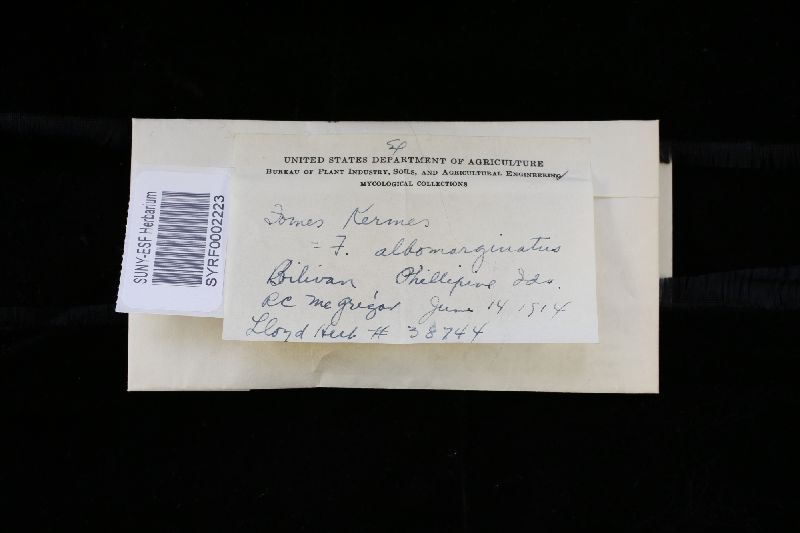 UNITED STATES DEPARTMENT OF AGRICULTURE
BUREAU OF PLANT INDUSTRY, SOILS, AND AGRICULTURAL ENGINEERING
MYCOLOGICAL COLLECTIONS
Fomes Kermes
= F. albomarginatus
Boilivan Phillipine Ids.
RC McGregor June 14 1914
Lloyd Herb # 38744
SUNY-ESF Herbarium
SYRF0002223